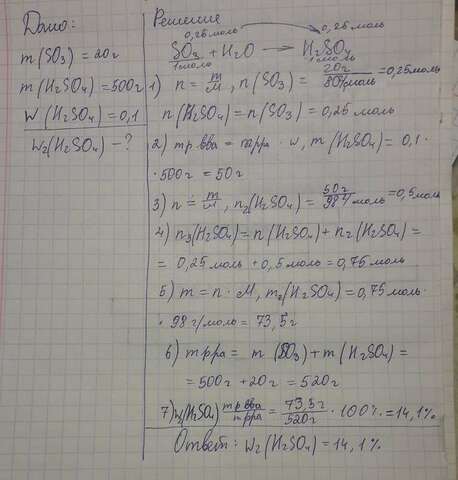 Дано:
m(SO₃) = 20г
m(H₂SO₄) = 500г
W(H₂SO₄) = 0,1
W₂(H₂SO₄) - ?
Решение
0,25 моль 0,25 моль
SO₃ + H₂O → H₂SO₄
1 моль 1 моль
1) n = m/M, n(SO₃) = 20г/80г/моль = 0,25моль
n(H₂SO₄) = n(SO₃) = 0,25 моль
2) mр.вва = mрра · w, m(H₂SO₄) = 0,1 ·
· 500г = 50г
3) n = m/M, n₂(H₂SO₄) = 50г/98г/моль = 0,5моль
4) n₃(H₂SO₄) = n(H₂SO₄) + n₂(H₂SO₄) =
= 0,25 моль + 0,5 моль = 0,75 моль
5) m = n · M, m₂(H₂SO₄) = 0,75 моль ·
· 98 г/моль = 73,5г
6) mрра = m(SO₃) + m(H₂SO₄) =
= 500г + 20г = 520г
7) w₂(H₂SO₄) = mр.вва/mрра = 73,5г/520г · 100% = 14,1%
Ответ: W₂(H₂SO₄) = 14,1%